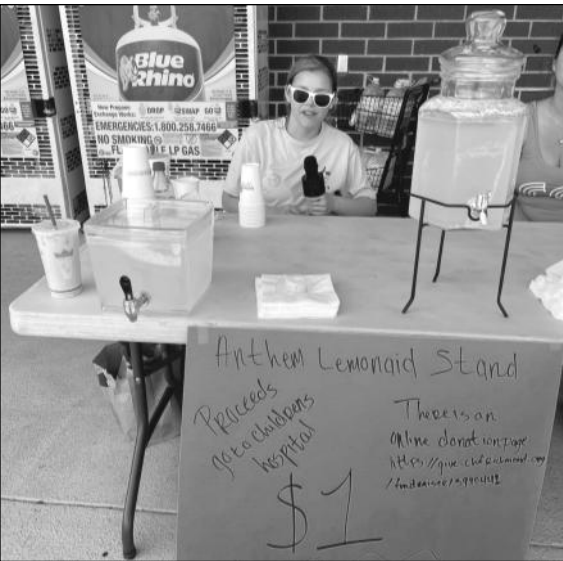 Blue
Rhino
DROP
SWAP
GO
EMERGENCIES:1.800.258.7466
NO SMOKING
LP GAS
Anthem Lemonaid Stand
Proceeds
go to childrens
hospital
$1
There is an
Online donation page